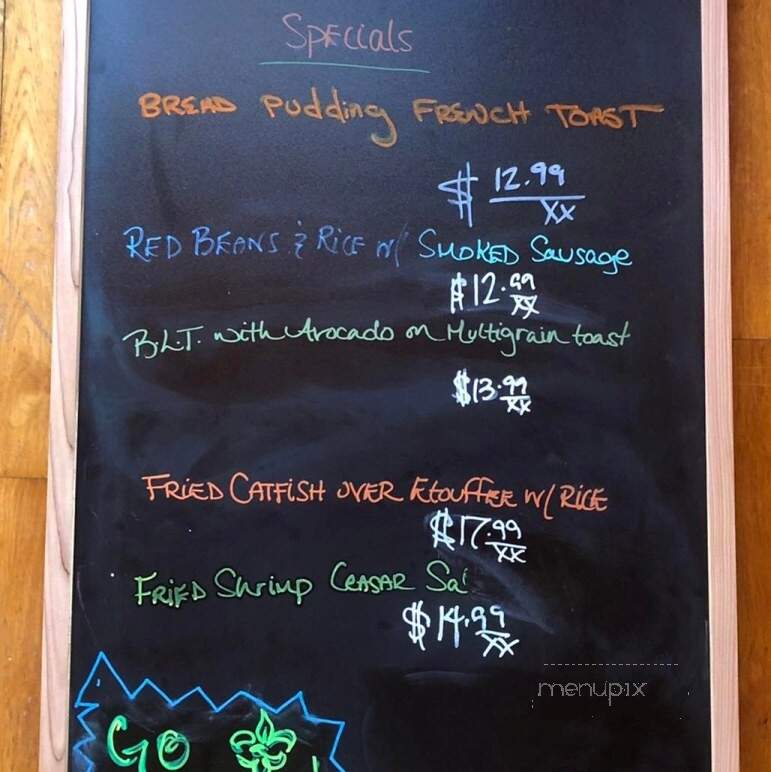 Specials
BREAD Pudding FRENCH TOAST
$ 12.99
XX
RED BEANS & RICE w/ SMOKED Sausage
$12.99
XX
B.L.T. with Avocado on Multigrain toast
$13.99
XX
FRIED CATFISH OVER Etouffee w/ RICE
$17.99
XX
FRIED Shrimp CEASAR
$14.99
XX
menupix
GO